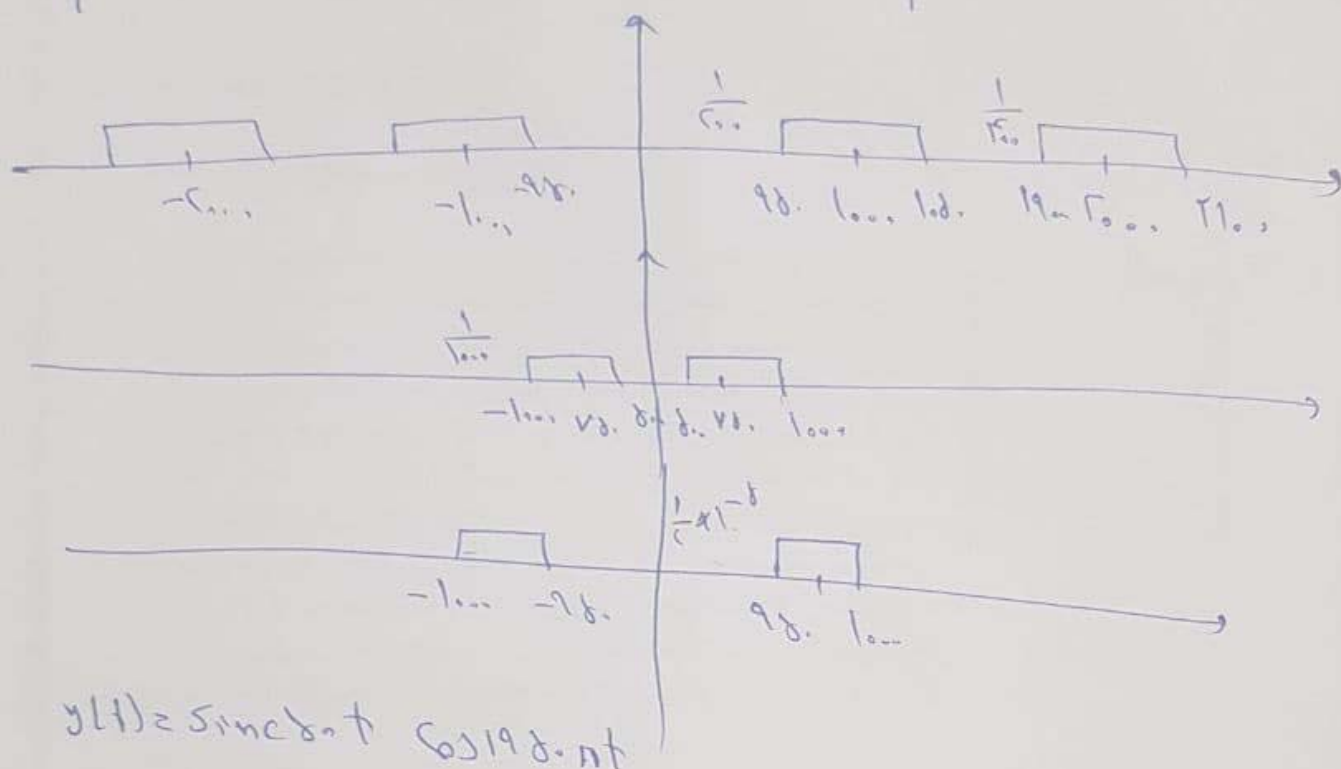 ۱/۲۰۰ ۱/۴۰۰
-۲۰۰۰ -۱۰۰۰ -۹۵۰ ۹۵۰ ۱۰۰۰ ۱۰۵۰ ۱۹۰۰ ۲۰۰۰ ۲۱۰۰
۱/۱۰۰۰
-۱۰۰۰ ۷۵۰ ۵۰۰ ۵۰۰ ۷۵۰ ۱۰۰۰
-۱۰۰۰ -۹۵۰ ۹۵۰ ۱۰۰۰
y(t) = sinc ۵۰t cos ۱۹۵۰πt